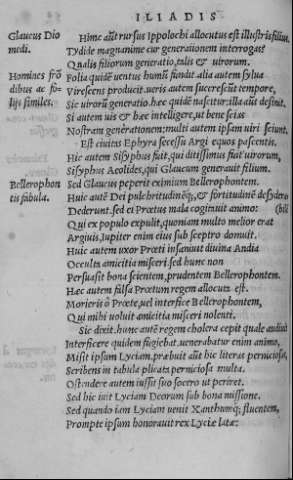 ILIADIS
Glaucus Dio
medi.
Homines frō
dibus ac fo-
lijs similes.
Bellerophon
tis fabula.
Hunc aūt rursus Ippolochi allocutus est illustris filius,
Tydide magnanime cur generationem interrogas?
Qualis filiorum generatio, talis & uirorum.
Folia quidē uentus humū fundit alia autem sylua
Virescens producit. ueris autem succrescūt tempore,
Sic uirorū generatio. hæc quidē nascitur, illa aūt desinit.
Si autem uis & hæc intelligere, ut bene scias
Nostram generationem: multi autem ipsam uiri sciunt.
Est ciuitas Ephyra secessu Argi equos pascentis.
Hic autem Sisyphus fuit, qui ditissimus fiat uirorum,
Sisyphus Aeolides, qui Glaucum generauit filium.
Sed Glaucus peperit eximium Bellerophontem.
Huic autē Dei pulchritudinēq;, & fortitudinē desydera
(bilē
Dederunt. sed ei Prœtus mala coginauit animo:
Qui ex populo expulit, quoniam multo melior erat
Argiuis, Iupiter enim eius sub sceptro domuit.
Huic autem uxor Prœti insaniuit diuina Andia
Occulta amicitia misceri. sed hunc non
Persuasit bona scientem, prudentem Bellerophontem.
Hæc autem falsa Prœtum regem allocuta est.
Morieris ô Prœte, uel interfice Bellerophontem,
Qui mihi uoluit amicitia misceri nolenti.
Sic dixit. hunc autē regem cholera cepit quale audiuit
Interficere quidem fugiebat. uenerabatur enim animo,
Misit ipsum Lyciam, præbuit aūt hic literas perniciosas,
Scribens in tabula plicata perniciosa multa.
Ostendere autem iussit suo socero ut periret.
Sed hic iuit Lyciam Deorum sub bona missione.
Sed quando iam Lyciam uenit Xanthumq; fluentem,
Prompte ipsum honorauit rex Lyciæ latæ: